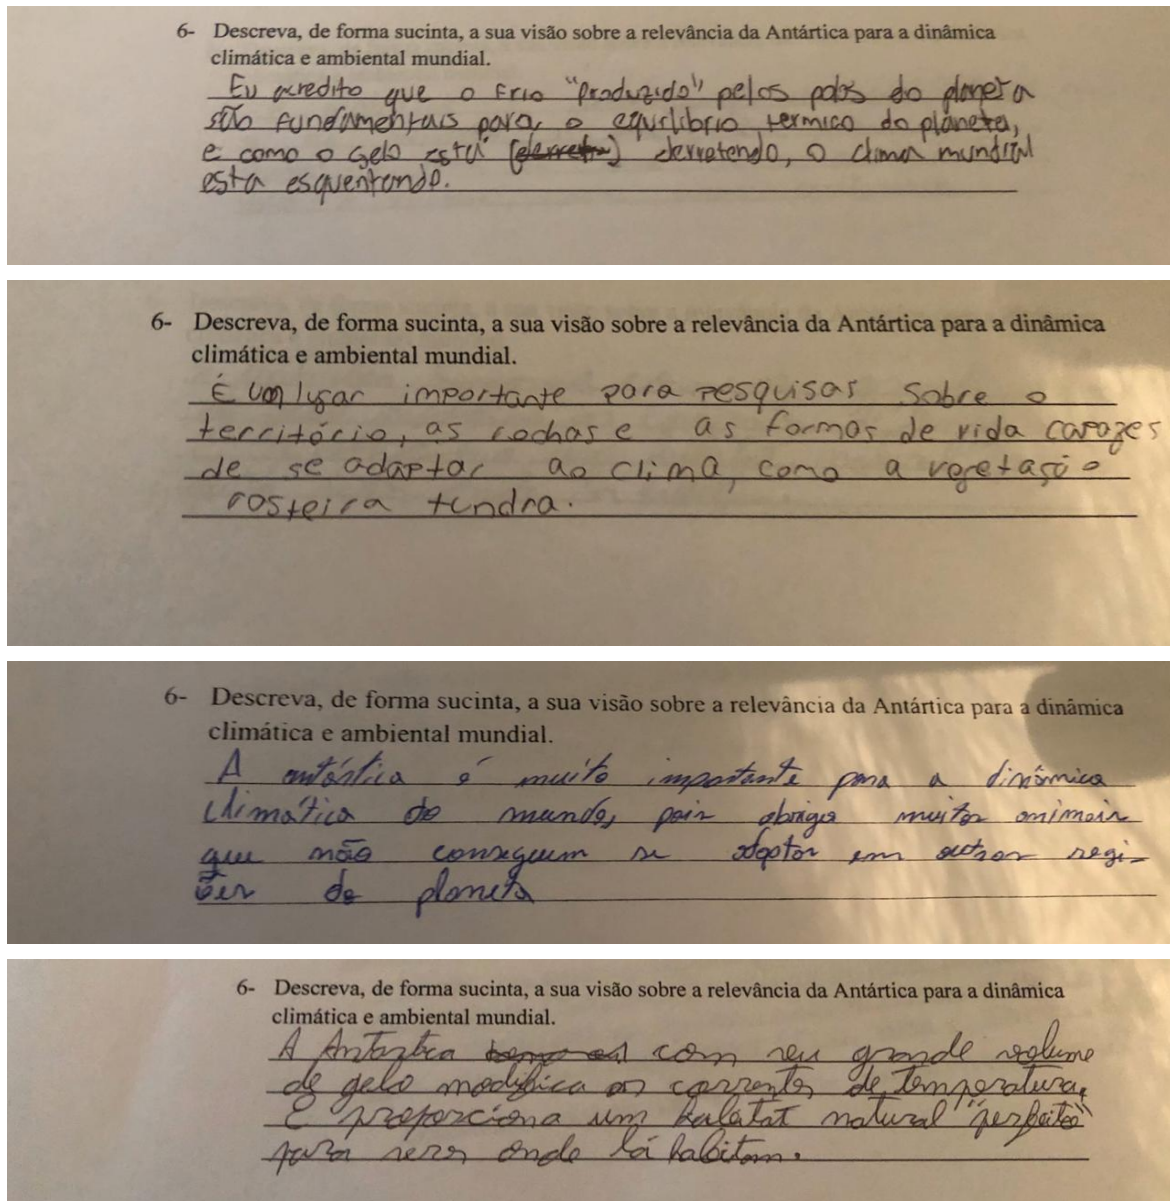 6- Descreva, de forma sucinta, a sua visão sobre a relevância da Antártica para a dinâmica
climática e ambiental mundial.
Eu acredito que o frio "produzido" pelos polos do planeta
são fundamentais para o equilibrio termico do planeta,
e como o gelo está derretendo, o clima mundial
esta esquentando.
6- Descreva, de forma sucinta, a sua visão sobre a relevância da Antártica para a dinâmica
climática e ambiental mundial.
É um lugar importante para pesquisas sobre o
território, as rochas e as formas de vida capazes
de se adaptar ao clima, como a vegetação
rosteira tundra.
6- Descreva, de forma sucinta, a sua visão sobre a relevância da Antártica para a dinâmica
climática e ambiental mundial.
A antártica é muito importante para a dinâmica
climática do mundo, pois abriga muitos animais
que não conseguem se adaptar em outras regi-
ões do planeta
6- Descreva, de forma sucinta, a sua visão sobre a relevância da Antártica para a dinâmica
climática e ambiental mundial.
A Antartica com seu grande volume
de gelo modifica as correntes de temperatura,
E proporciona um habitat natural "perfeito"
para seres onde lá habitam.